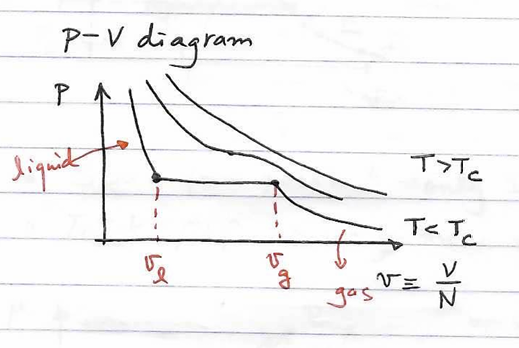 P-V diagram
P
liquid
T>Tc
T<Tc
vℓ
vg
gas
v ≡ V/N